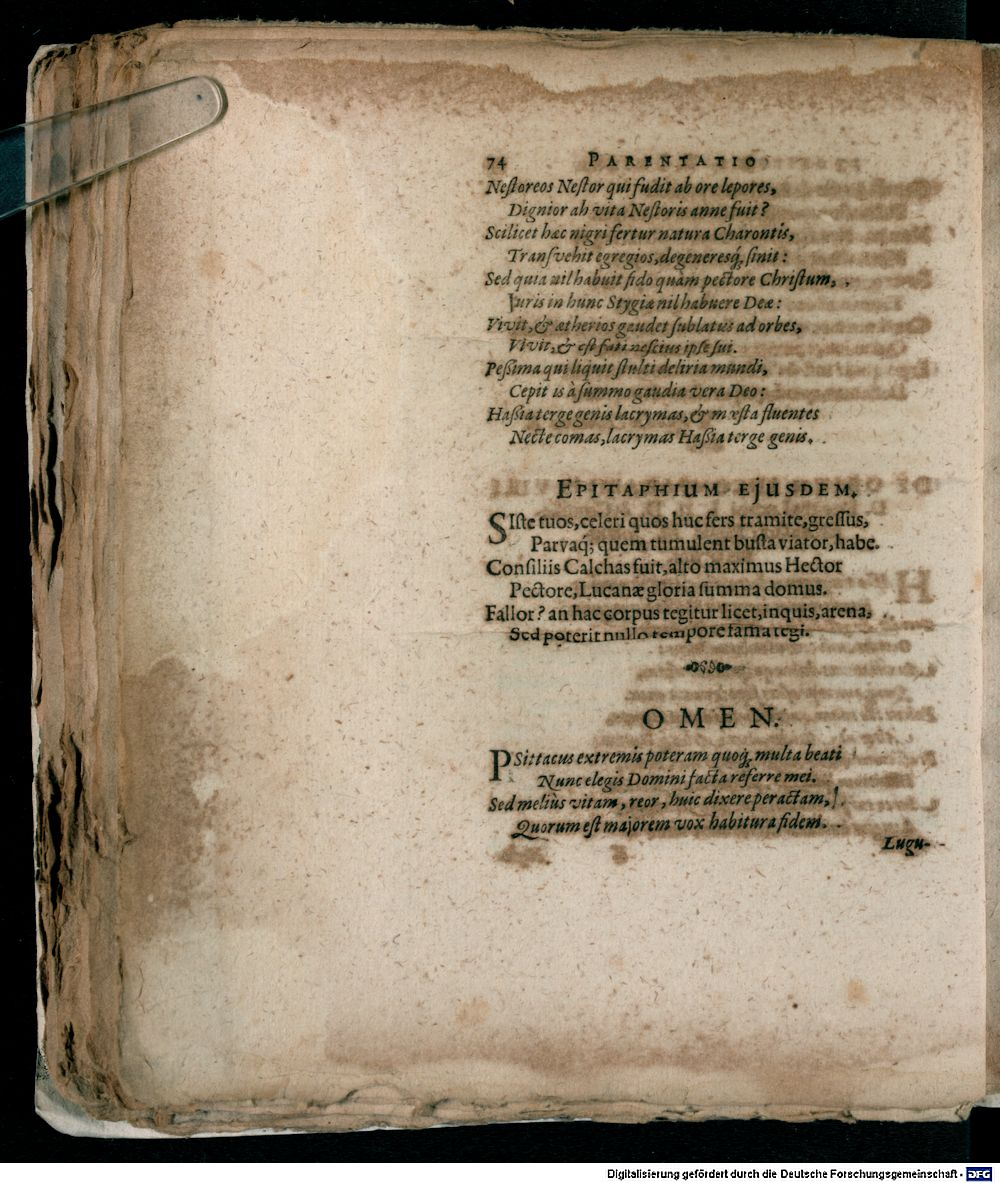 74 PARENTATIO
Nestoreos Nestor qui fudit ab ore lepores,
Dignior ah vita Nestoris anne fuit?
Scilicet hæc nigri fertur natura Charontis,
Transvehit egregios, degeneresq́, sinit:
Sed quia nil habuit fido quàm pectore Christum,
Juris in hunc Stygiæ nil habuere Deæ:
Vivit, & ætherios gaudet sublatus ad orbes,
Vivit, & est fati nescius ipse sui.
Peßima qui liquit stulti deliria mundi,
Cepit is à summo gaudia vera Deo:
Haßia terge genis lacrymas, & mæsta fluentes
Necte comas, lacrymas Haßia terge genis.
EPITAPHIUM EJUSDEM.
SIste tuos, celeri quos huc fers tramite, gressus,
Parvaq́; quem tumulent busta viator, habe.
Consiliis Calchas fuit, alto maximus Hector
Pectore, Lucanæ gloria summa domus.
Fallor? an hac corpus tegitur licet, inquis, arena,
Sed poterit nullo tempore fama tegi.
OMEN.
PSittacus extremis poteram quoq́, multa beati
Nunc elegis Domini facta referre mei.
Sed meliùs vitam, reor, huic dixere peractam,
Quorum est majorem vox habitura fidem.
Lugu-
Digitalisierung gefördert durch die Deutsche Forschungsgemeinschaft - DFG